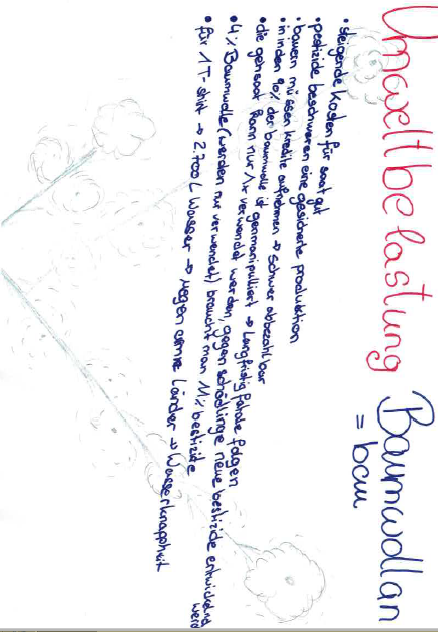 Umweltbelastung Baumwollan
= bau
• steigende Kosten für saat gut
• pestizide beschweren eine gesicherte produktion
• bauern müssen kredite aufnehmen → schwer abbezahlbar
• in inden 90% der baumwolle ist genmanipulliert → Langfristig fatale folgen
• die gehsaat kann nur 1x verwendet werden, gegen schädlinge neue bestizide entwickelnd werd
• 4% Baumwolle (werden nur verwendet) braucht man 11% bestizide
• für 1 T-shirt → 2.700 L Wasser → regen arme Länder → Wasserknappheit